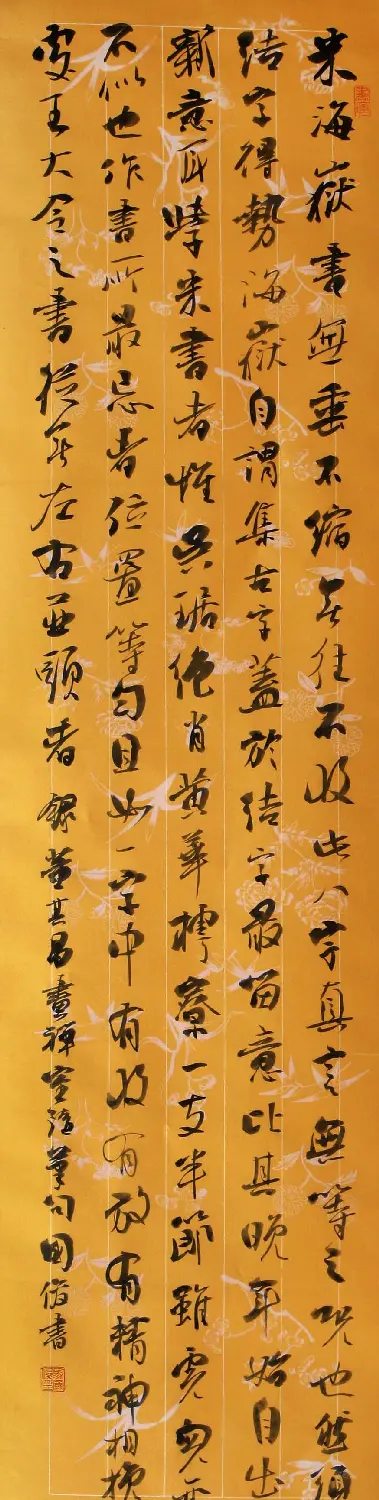 米海嶽書無垂不縮無往不收此八字真言無等之呪也然須
結字得勢海嶽自謂集古字蓋於結字最留意比其晚年始自出
新意耳學米書者惟吳琚絕肖黃華樗寮一支半節雖虎兒亦
不似也作書所最忌者位置等勻且如一字中有收有放有精神相挽
處王大令之書從無左右並頭者 錄董其昌畫禪室隨筆句 國 書